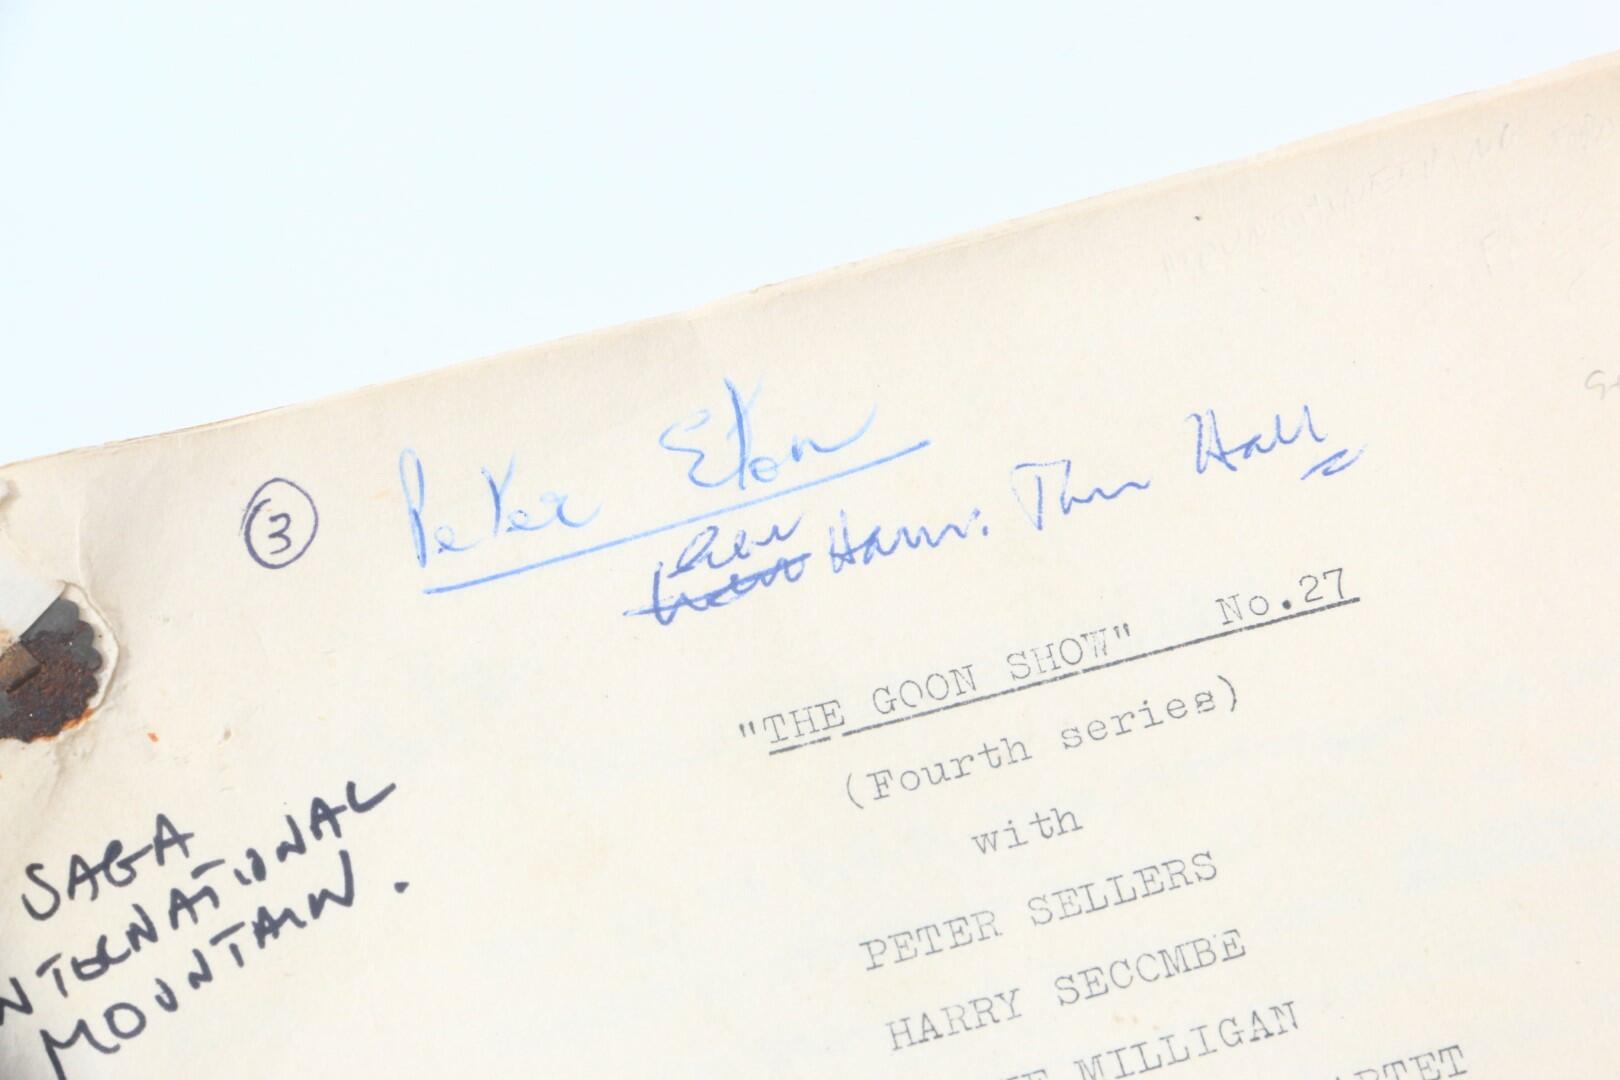 3
Peter Eton
Hall
"THE GOON SHOW" No.27
(Fourth series)
with
PETER SELLERS
HARRY SECOMBE
MILLIGAN
SAGA
NTERNATIONAL
MOUNTAIN.